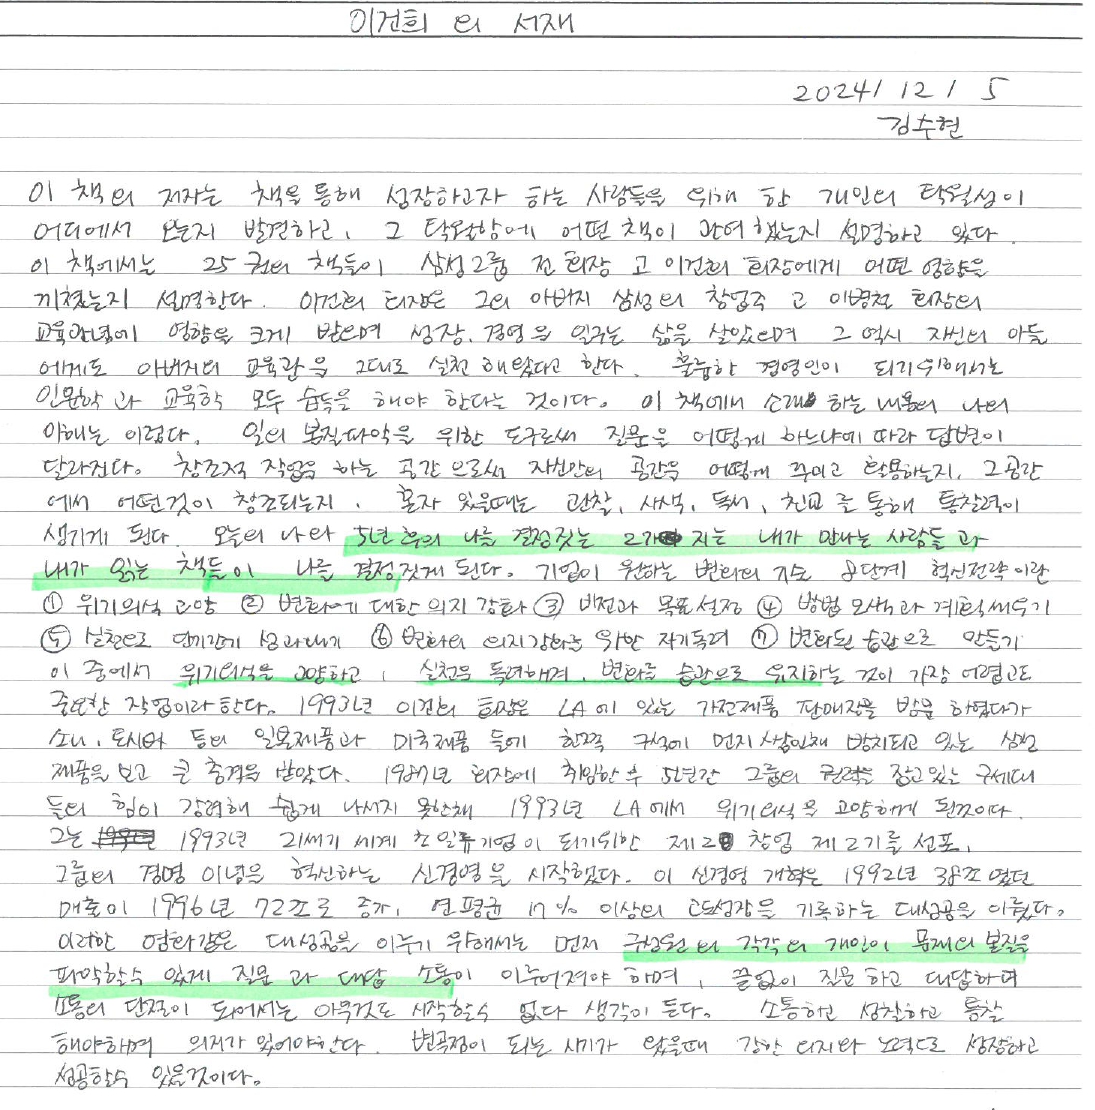 이건희의 서재
2024/12/5
김수현
이 책의 저자는 책을 통해 성장하고자 하는 사람들을 위해 한 개인의 탁월성이
어디에서 오는지 발견하고, 그 탁월함에 어떤 책이 관여했는지 설명하고 있다.
이 책에서는 25권의 책들이 삼성그룹 전 회장 고 이건희 회장에게 어떤 영향을
끼쳤는지 설명한다. 이건희 회장은 그의 아버지 삼성의 창업주 고 이병철 회장의
교육관념에 영향을 크게 받으며 성장, 경영을 일구는 삶을 살았으며 그 역시 자신의 아들
에게도 아버지의 교육관을 그대로 실천해왔다고 한다. 훌륭한 경영인이 되기위해서는
인문학과 교육학 모두 습득을 해야 한다는 것이다. 이 책에서 소개하는 내용의 나의
이해는 이렇다. 일의 본질파악을 위한 도구로써 질문을 어떻게 하느냐에 따라 답변이
달라진다. 창조적 작업을 하는 공간으로써 자신만의 공간을 어떻게 꾸미고 활용하는지, 그공간
에서 어떤것이 창조되는지. 혼자 있을때는 관찰, 사색, 독서, 친교를 통해 통찰력이
생기게 된다. 오늘의 나와 5년 후의 나를 결정짓는 2가지는 내가 만나는 사람들과
내가 읽는 책들이 나를 결정짓게 된다. 기업이 원하는 변화의 지속 8단계 혁신전략이란
① 위기의식 고양 ② 변화에 대한 의지 강화 ③ 비전과 목표설정 ④ 방법 모색과 계획세우기
⑤ 실천으로 단기간에 성과내기 ⑥ 변화의 의지강화를 위한 자기독려 ⑦ 변화된 습관으로 만들기
이 중에서 위기의식을 고양하고, 실천을 독려해며, 변화를 습관으로 유지하는 것이 가장 어렵고도
중요한 작업이라 한다. 1993년 이건희 회장은 LA에 있는 가전제품 판매장을 방문 하였다가
소니, 도시바 등의 일본제품과 미국제품 등에 한쪽 구석에 먼지 쌓인채 방치되고 있는 삼성
제품을 보고 큰 충격을 받았다. 1987년 회장에 취임한 후 5년간 그룹의 권력을 잡고있는 구세대
들의 힘이 강력해 쉽게 나서지 못한채 1993년 LA에서 위기의식을 고양하게 된것이다.
그는 1993년 21세기 세계 초일류기업이 되기위한 제2 창업 제2기를 선포,
그룹의 경영 이념을 혁신하는 신경영을 시작했다. 이 신경영 개혁은 1992년 38조 였던
매출이 1996년 72조로 증가, 연평균 17% 이상의 고도성장을 기록하는 대성공을 이뤘다.
이러한 변화같은 대성공을 이루기 위해서는 먼저 구성원의 각각의 개인이 문제의 본질을
파악할수 있게 질문과 대답 소통이 이루어져야 하며, 끝없이 질문하고 대답하며
소통의 단절이 되어서는 아무것도 시작할수 없다 생각이 든다. 소통하고 성찰하고 통찰
해야하며 의지가 있어야한다. 변곡점이 되는 시기가 왔을때 강한 의지와 노력으로 성장하고
성공할수 있을것이다.